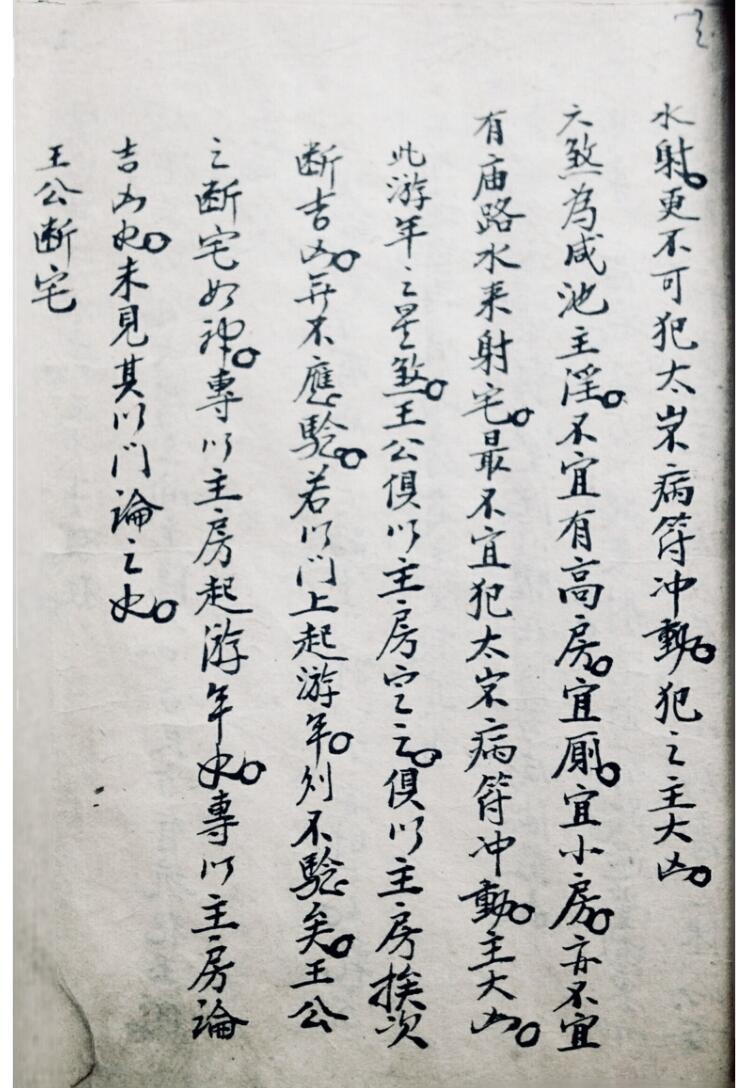 水射。更不可犯太岁病符冲動。犯之主大凶。
六煞為咸池主淫。不宜有高房。宜厠。宜小房。亦不宜
有庙路水来射宅。最不宜犯太岁病符冲動。主大凶。
此游年之星煞。王公俱以主房定之。俱以主房挨次
断吉凶。并不應驗。若以门上起游年。则不驗矣。王公
之断宅如神。專以主房起游年也。專以主房論
吉凶也。未見其以门論之也。
王公断宅